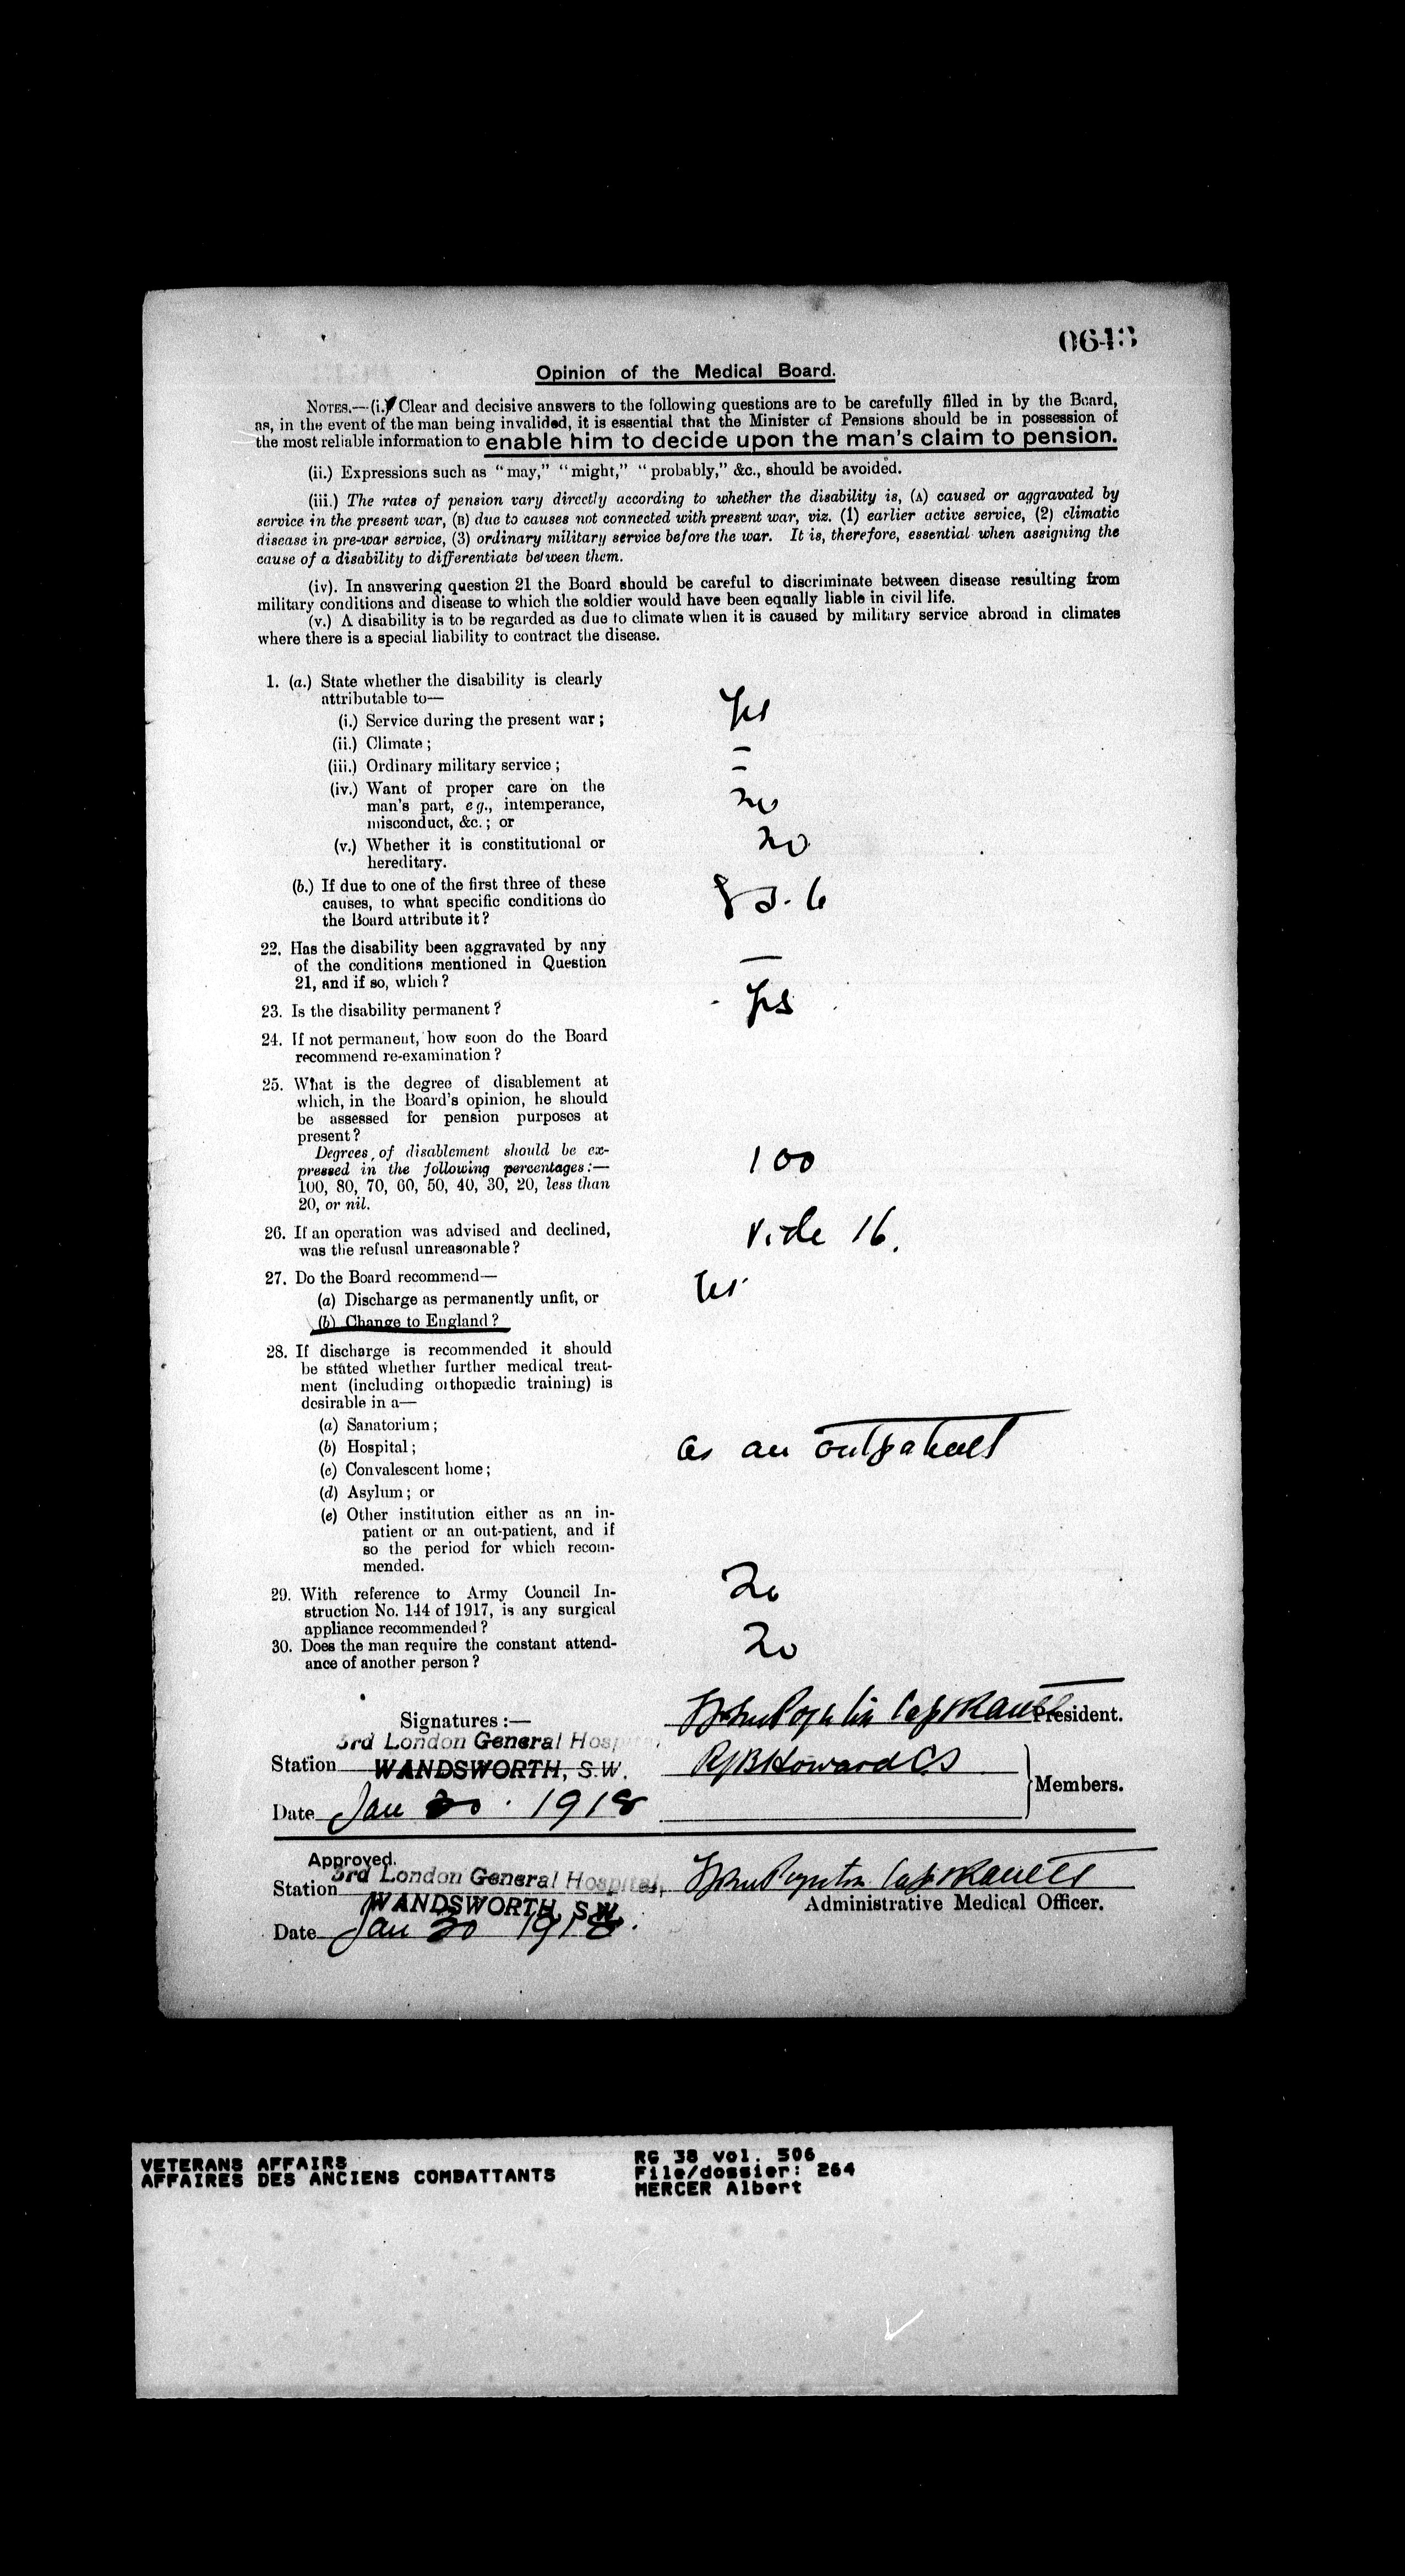 0643
Opinion of the Medical Board.
NOTES.—(i.) Clear and decisive answers to the following questions are to be carefully filled in by the Board,
as, in the event of the man being invalided, it is essential that the Minister of Pensions should be in possession of
the most reliable information to enable him to decide upon the man's claim to pension.
(ii.) Expressions such as "may," "might," "probably," &c., should be avoided.
(iii.) The rates of pension vary directly according to whether the disability is, (A) caused or aggravated by
service in the present war, (B) due to causes not connected with present war, viz. (1) earlier active service, (2) climatic
disease in pre-war service, (3) ordinary military service before the war. It is, therefore, essential when assigning the
cause of a disability to differentiate between them.
(iv). In answering question 21 the Board should be careful to discriminate between disease resulting from
military conditions and disease to which the soldier would have been equally liable in civil life.
(v.) A disability is to be regarded as due to climate when it is caused by military service abroad in climates
where there is a special liability to contract the disease.
1. (a.) State whether the disability is clearly
attributable to—
(i.) Service during the present war; Yes
(ii.) Climate; –
(iii.) Ordinary military service; –
(iv.) Want of proper care on the
man's part, eg., intemperance, no
misconduct, &c.; or
(v.) Whether it is constitutional or no
hereditary.
(b.) If due to one of the first three of these
causes, to what specific conditions do
the Board attribute it?
22. Has the disability been aggravated by any
of the conditions mentioned in Question —
21, and if so, which?
23. Is the disability permanent? Yes
24. If not permanent, how soon do the Board
recommend re-examination?
25. What is the degree of disablement at
which, in the Board's opinion, he should
be assessed for pension purposes at
present?
Degrees of disablement should be ex-
pressed in the following percentages:— 100
100, 80, 70, 60, 50, 40, 30, 20, less than
20, or nil.
26. If an operation was advised and declined, Vide 16.
was the refusal unreasonable?
27. Do the Board recommend—
(a) Discharge as permanently unfit, or Yes
(b) Change to England?
28. If discharge is recommended it should
be stated whether further medical treat-
ment (including orthopædic training) is
desirable in a—
(a) Sanatorium;
(b) Hospital; as an outpatient
(c) Convalescent home;
(d) Asylum; or
(e) Other institution either as an in-
patient or an out-patient, and if
so the period for which recom-
mended.
29. With reference to Army Council In- No
struction No. 144 of 1917, is any surgical
appliance recommended?
30. Does the man require the constant attend- No
ance of another person?
Signatures:— President.
3rd London General Hosp
Station WANDSWORTH, S.W. Howard
Members.
Date Jan 30. 1918
Approved.
3rd London General Hospital,
Station
WANDSWORTH, S.W. Administrative Medical Officer.
Date Jan 30 1918.
VETERANS AFFAIRS
AFFAIRES DES ANCIENS COMBATTANTS
RG 38 vol. 506
File/dossier: 264
MERCER Albert